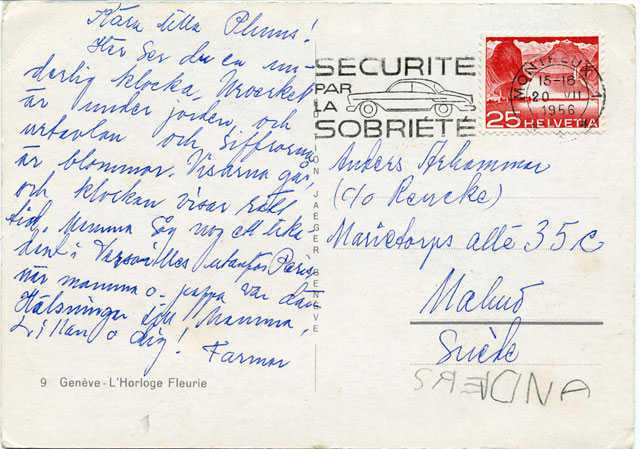 Kära lilla Plums!
Här ser du en un-
derlig klocka. Urverket
är under jorden, och
urtavlan och siffrorna
är blommor. Visarna går,
och klockan visar rätt
tid. Mamma såg nog ett lika-
dant i Versailles utanför Paris
när mamma o. pappa var där
Hälsningar till Mamma,
Lillan o dig!
Farmor
9 Genève - L'Horloge Fleurie
EDITION JAEGER GENÈVE
SÉCURITÉ
PAR
LA
SOBRIÉTÉ
MONTREUX 1
15-16
20 VII
1956
25 HELVETIA
Anders
(c/o Rencke)
allé 35 c
Malmö
Suède
ANDERS